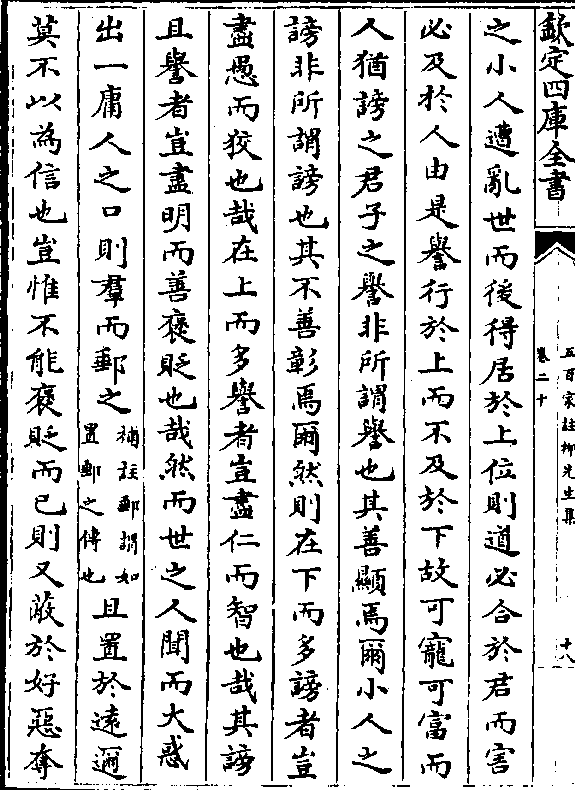 欽定四庫全書
五百家註柳先生集
卷二十
十八
之小人遭亂世而後得居於上位則道必合於君而害
必及於人由是譽行於上而不及於下故可寵可富而
人猶謗之君子之譽非所謂譽也其善顯焉爾小人之
謗非所謂謗也其不善彰焉爾然則在下而多謗者豈
盡愚而狡也哉在上而多譽者豈盡仁而智也哉其謗
且譽者豈盡明而善褒貶也哉然而世之人聞而大惑
出一庸人之口則羣而郵之補註郵謂如置郵之傳也且置於遠邇
莫不以為信也豈惟不能褒貶而已則又蔽於好惡奪